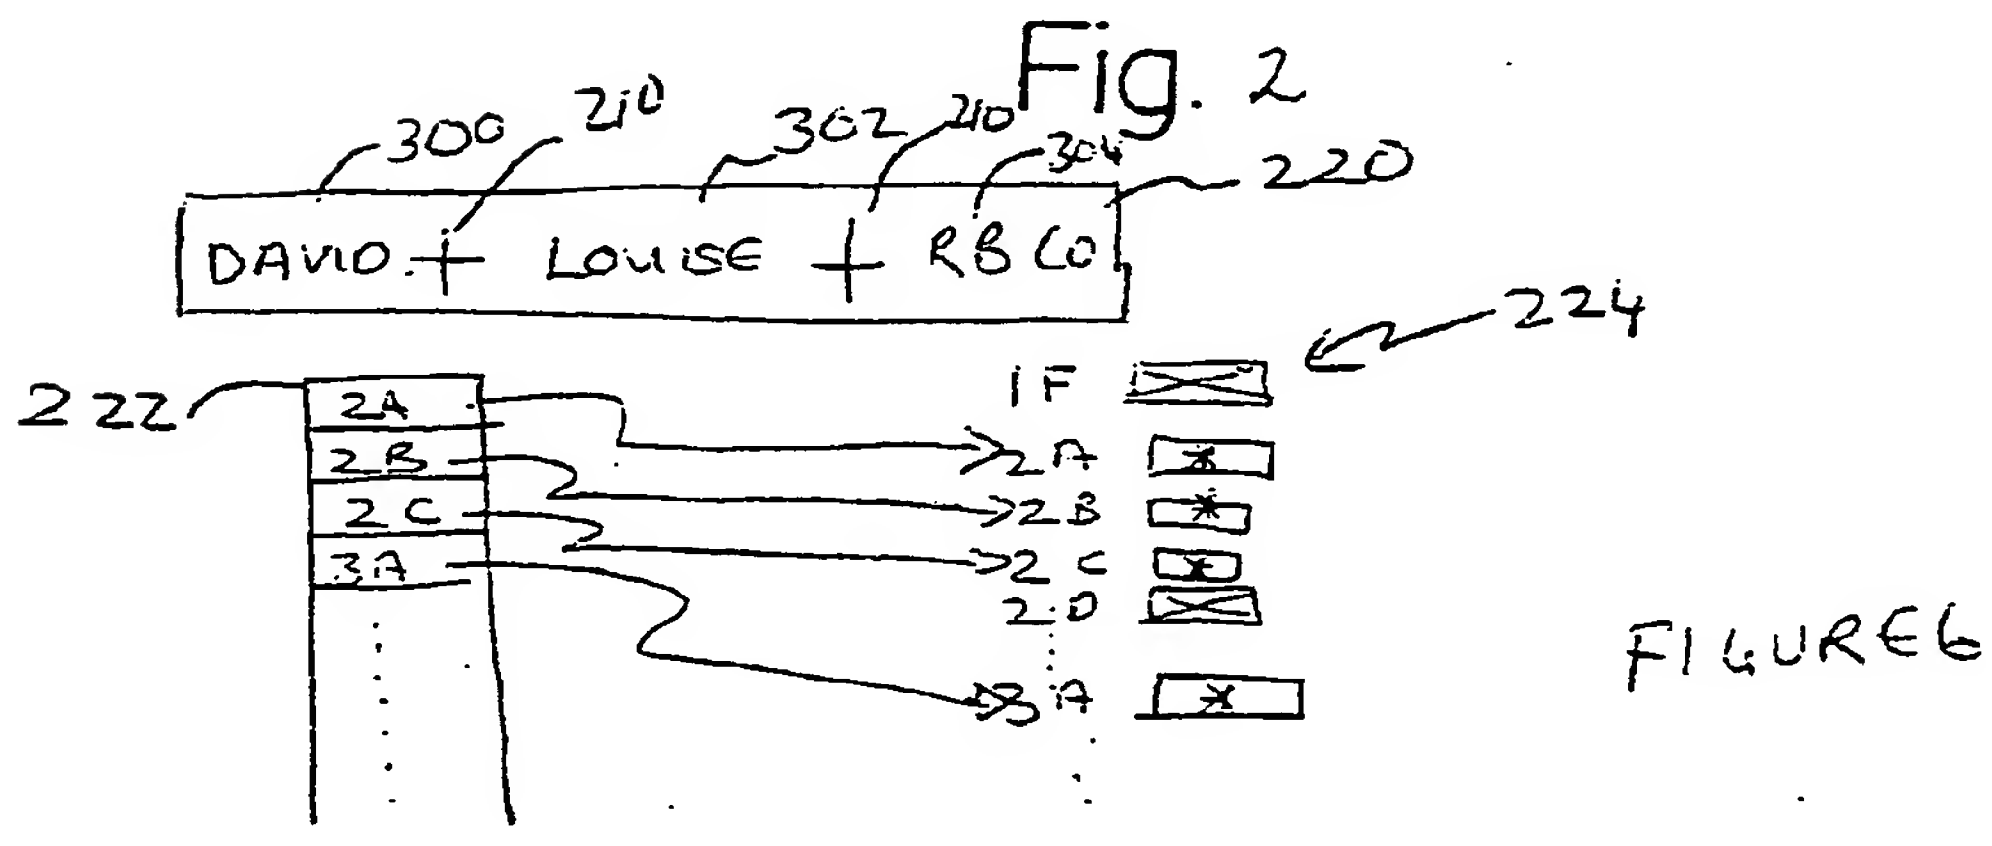 Fig. 2
300 210 302 210 304 220
DAVID + LOUISE + RB CO
224
1F
222 2A 2A
2B 2B
2C 2C
3A 2D
3A
FIGURE 6